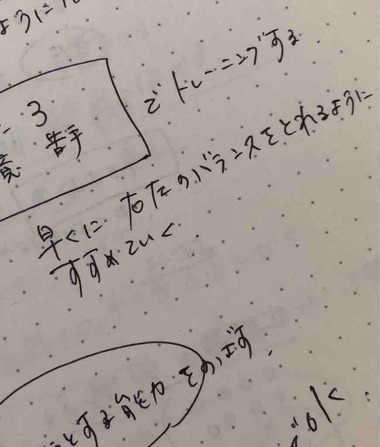 ように
3
苦手
でトレーニングする
早くに 右左のバランスをとれるように
すすめていく
とする能力をのばす.